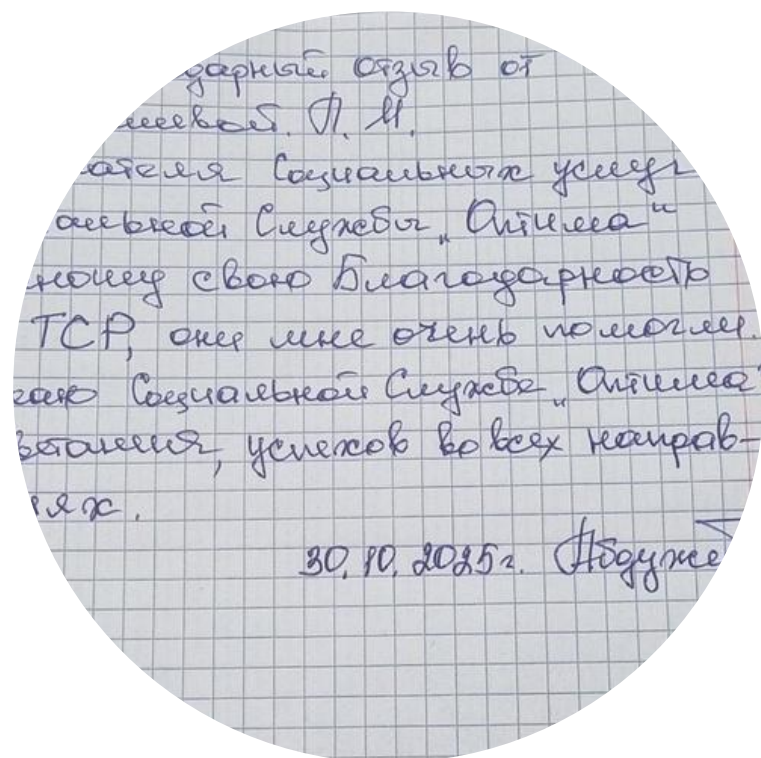 дарный отзыв от
шевой. Л. М.
ателя Социальных услуг
альной Службы „Оптима“
ношу свою Благодарность
ТСР, они мне очень помогли.
лаю Социальной Службе „Оптима“
ветания, успехов во всех направ-
иях.
30.10.2025г.